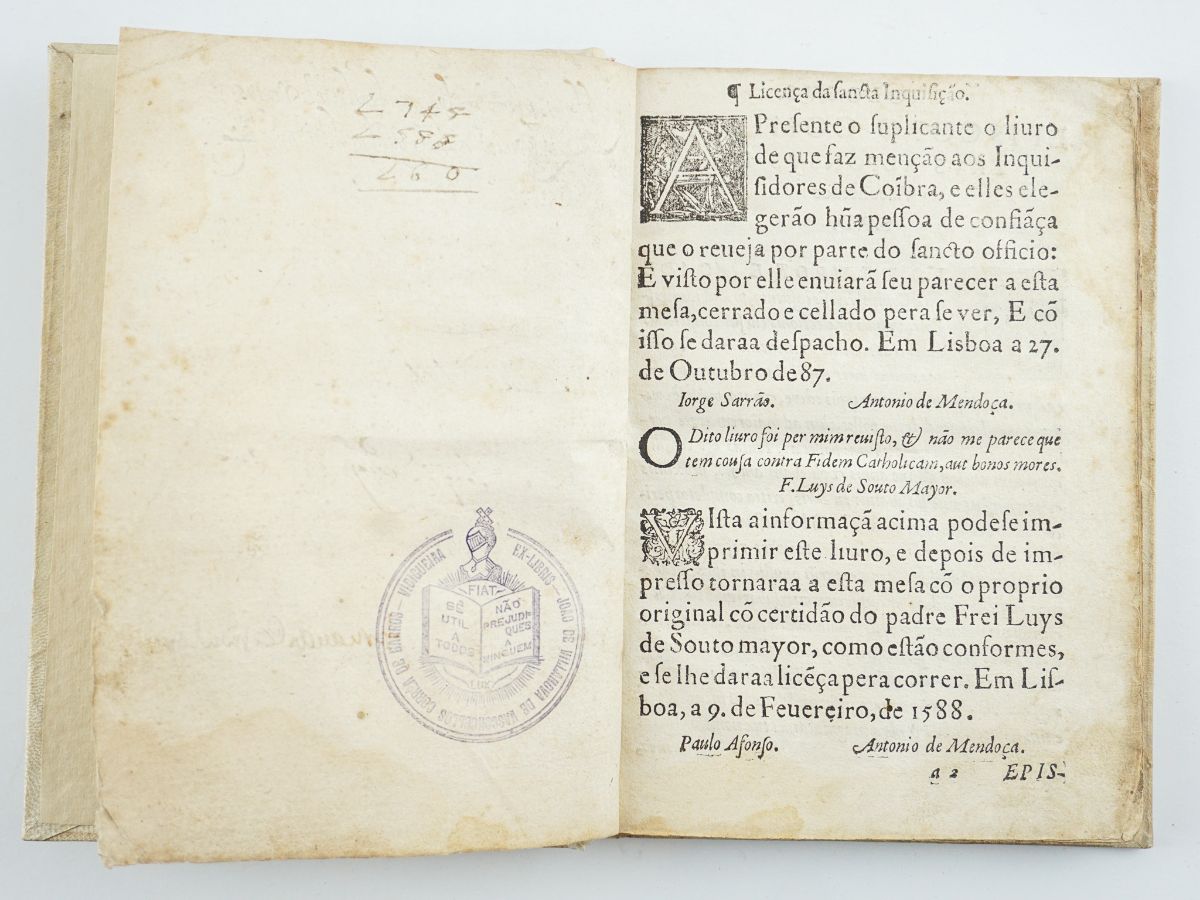 1745
1588
160
EX-LIBROS – JOÃO DE VILLANOVA DE VASCONCELLOS CORRÊA DE BARROS – VIDIGUEIRA
FIAT
SÊ UTIL A TODOS
NÃO PREJUDIQUES A NINGUEM
LUX
¶ Licença da sancta Inquisição.
APresente o suplicante o liuro
de que faz menção aos Inqui-
sidores de Coĩbra, e elles ele-
gerão hũa pessoa de confiãça
que o reueja por parte do sancto officio:
E visto por elle enuiarã seu parecer a esta
mesa, cerrado e cellado pera se ver, E cõ
isso se daraa despacho. Em Lisboa a 27.
de Outubro de 87.
Iorge Sarrão. Antonio de Mendoça.
O Dito liuro foi per mim reuisto, & não me parece que
tem cousa contra Fidem Catholicam, aut bonos mores.
F. Luys de Souto Mayor.
VIsta a informaçã acima podese im-
primir este liuro, e depois de im-
presso tornaraa a esta mesa cõ o proprio
original cõ certidão do padre Frei Luys
de Souto mayor, como estão conformes,
e se lhe daraa licẽça pera correr. Em Lis-
boa, a 9. de Feuereiro, de 1588.
Paulo Afonso. Antonio de Mendoça.
a 2 EPIS-